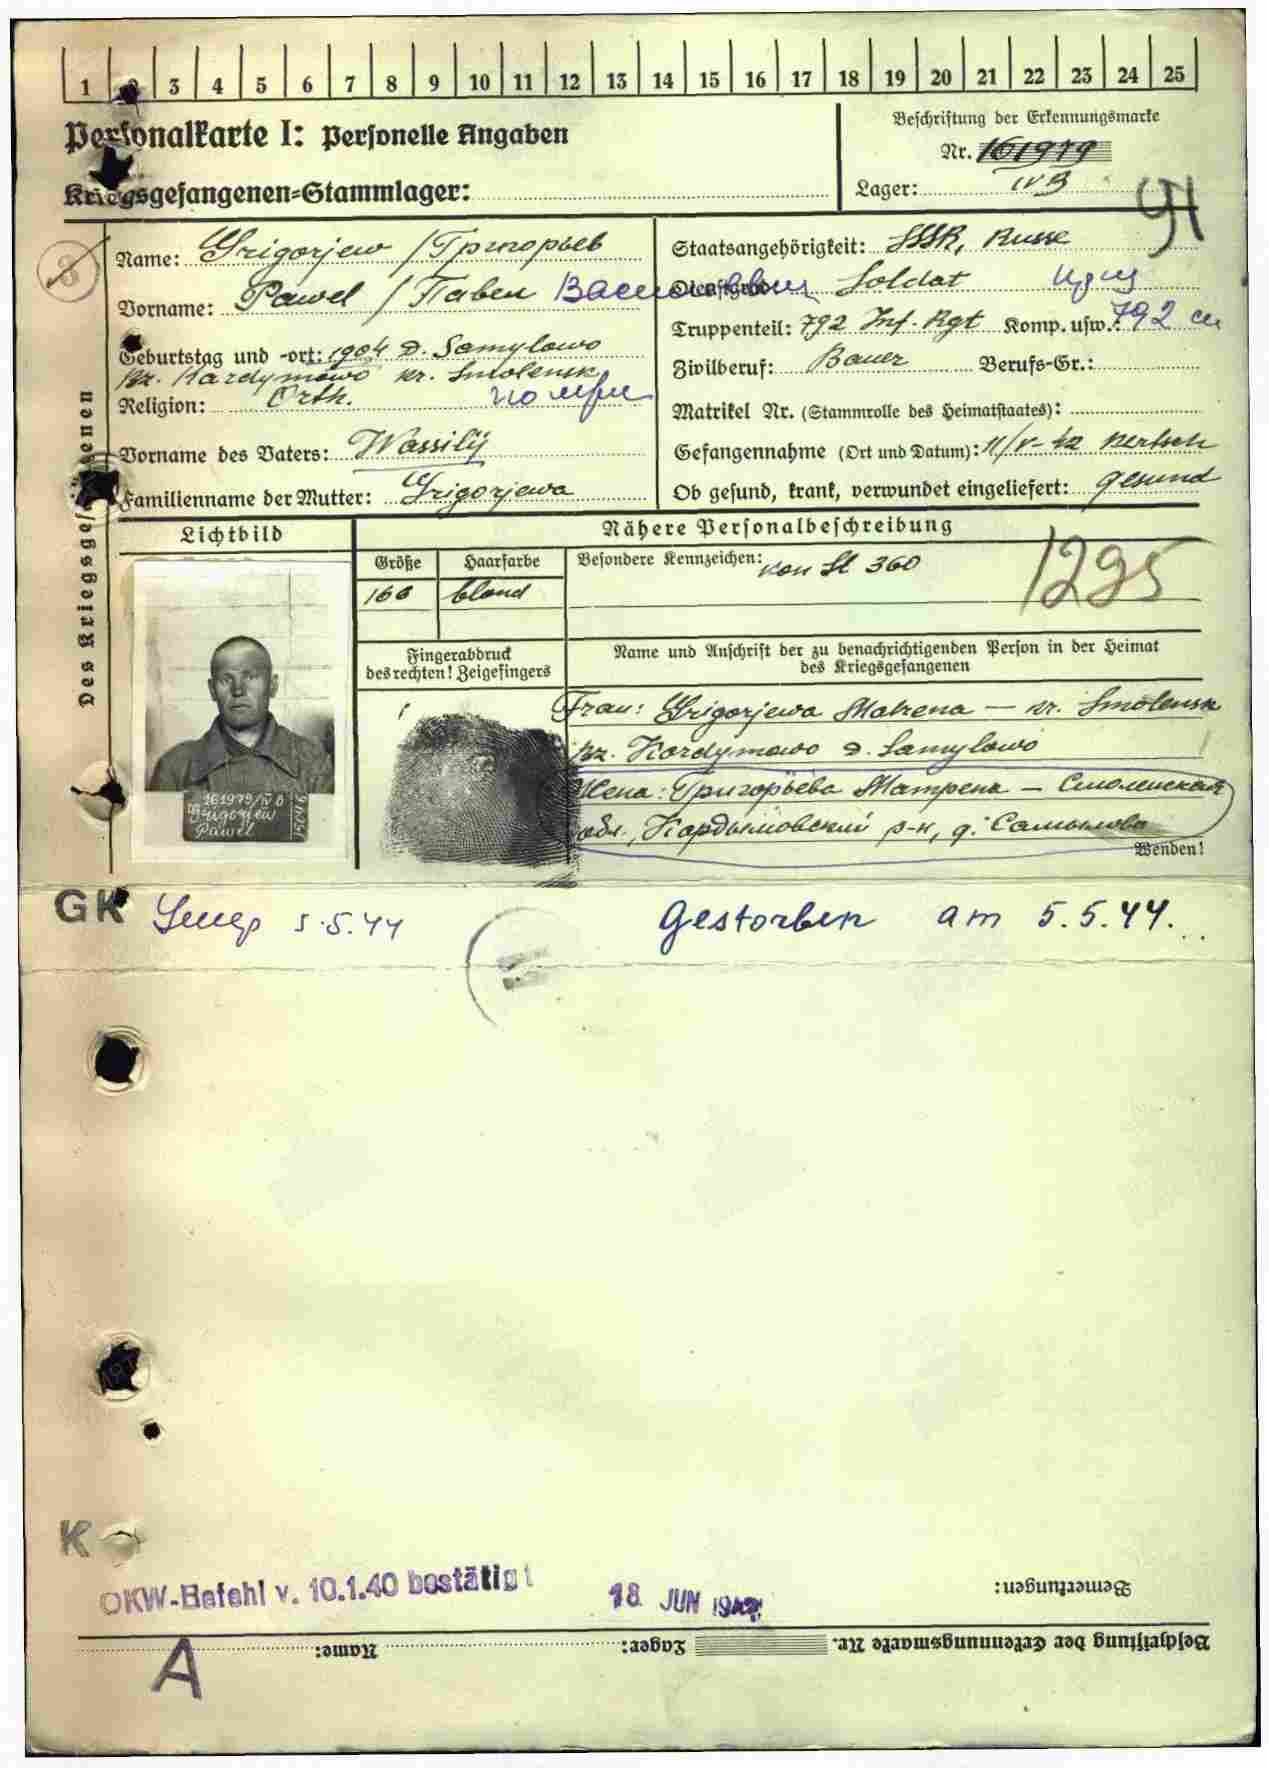 1 2 3 4 5 6 7 8 9 10 11 12 13 14 15 16 17 18 19 20 21 22 23 24 25
Personalkarte I: Personelle Angaben
Kriegsgefangenen-Stammlager:
Beschriftung der Erkennungsmarke
Nr. 161979
Lager: IV B
Des Kriegsgefangenen
3
Name: Grigorjew / Григорьев
Vorname: Pawel / Павел Васильевич
Geburtstag und -ort: 1904 D. Samylowo
Bz. Kardymowo Kr. Smolensk
Religion: Orth.
Vorname des Vaters: Wassilij
Familienname der Mutter: Grigorjewa
Staatsangehörigkeit: SSSR, Russe
Dienstgrad: Soldat
Truppenteil: 792 Inf. Rgt Komp. usw.: 792 сп
Zivilberuf: Bauer Berufs-Gr.:
Matrikel Nr. (Stammrolle des Heimatstaates):
Gefangennahme (Ort und Datum): 11/V-42 Kertsch
Ob gesund, krank, verwundet eingeliefert: gesund
Lichtbild
Nähere Personalbeschreibung
Größe Haarfarbe Besondere Kennzeichen: von St 360
166 blond
1295
Fingerabdruck
des rechten! Zeigefingers
Name und Anschrift der zu benachrichtigenden Person in der Heimat
des Kriegsgefangenen
Frau: Grigorjewa Matrena — Kr. Smolensk
Bz. Kordymowo D. Samylowo
Жена: Григорьева Матрена — Смоленская
обл., Кардымовский р-н, д. Самылово
Wenden!
161979/IV B
Grigorjew
Pawel
GK Умер 5.5.44 Gestorben am 5.5.44.
K
OKW-Befehl v. 10.1.40 bestätigt
18. JUN
Bemerkungen:
Beschriftung der Erkennungsmarke Nr. Lager: Name:
A